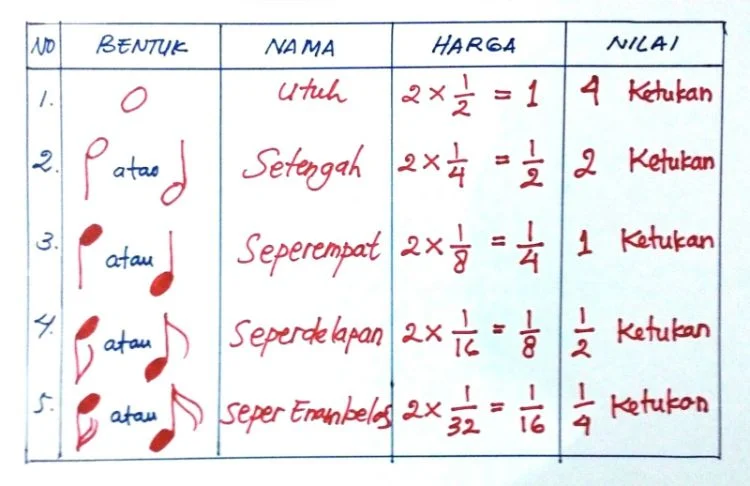 NO BENTUK NAMA HARGA NILAI
1. Utuh 2 × 1/2 = 1 4 Ketukan
2. atao Setengah 2 × 1/4 = 1/2 2 Ketukan
3. atau Seperempat 2 × 1/8 = 1/4 1 Ketukan
4. atau Seperdelapan 2 × 1/16 = 1/8 1/2 Ketukan
5. atau Seper Enambelas 2 × 1/32 = 1/16 1/4 Ketukan